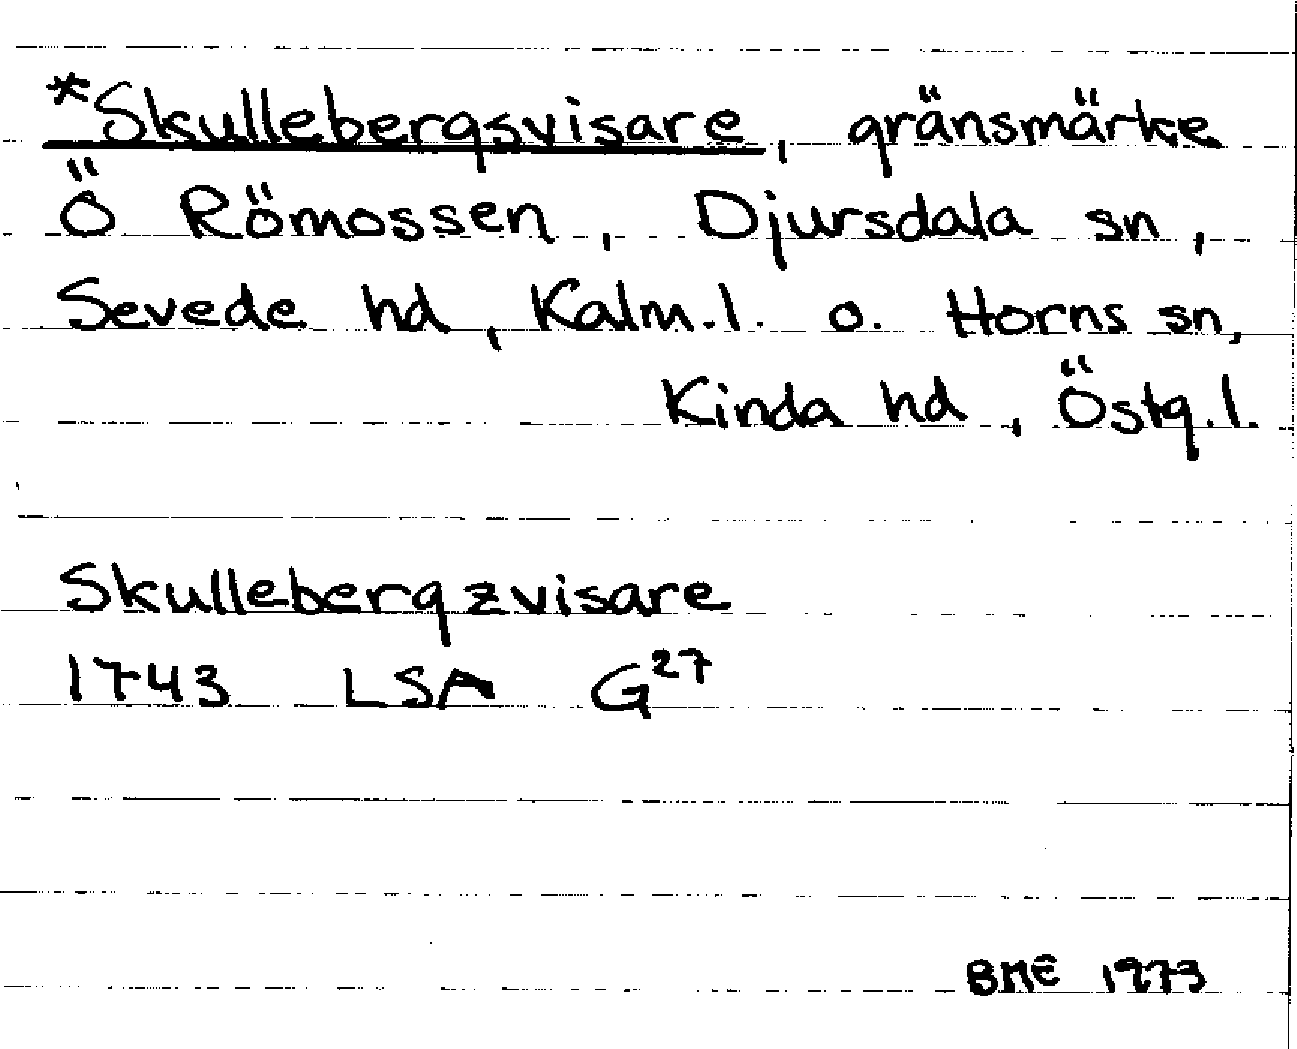 *Skullebergsvisare, gränsmärke
Ö Römossen, Djursdala sn,
Sevede hd, Kalm.l. o. Horns sn,
Kinda hd, Östg.l.
Skullebergzvisare
1743 LSA G27
BME 1973